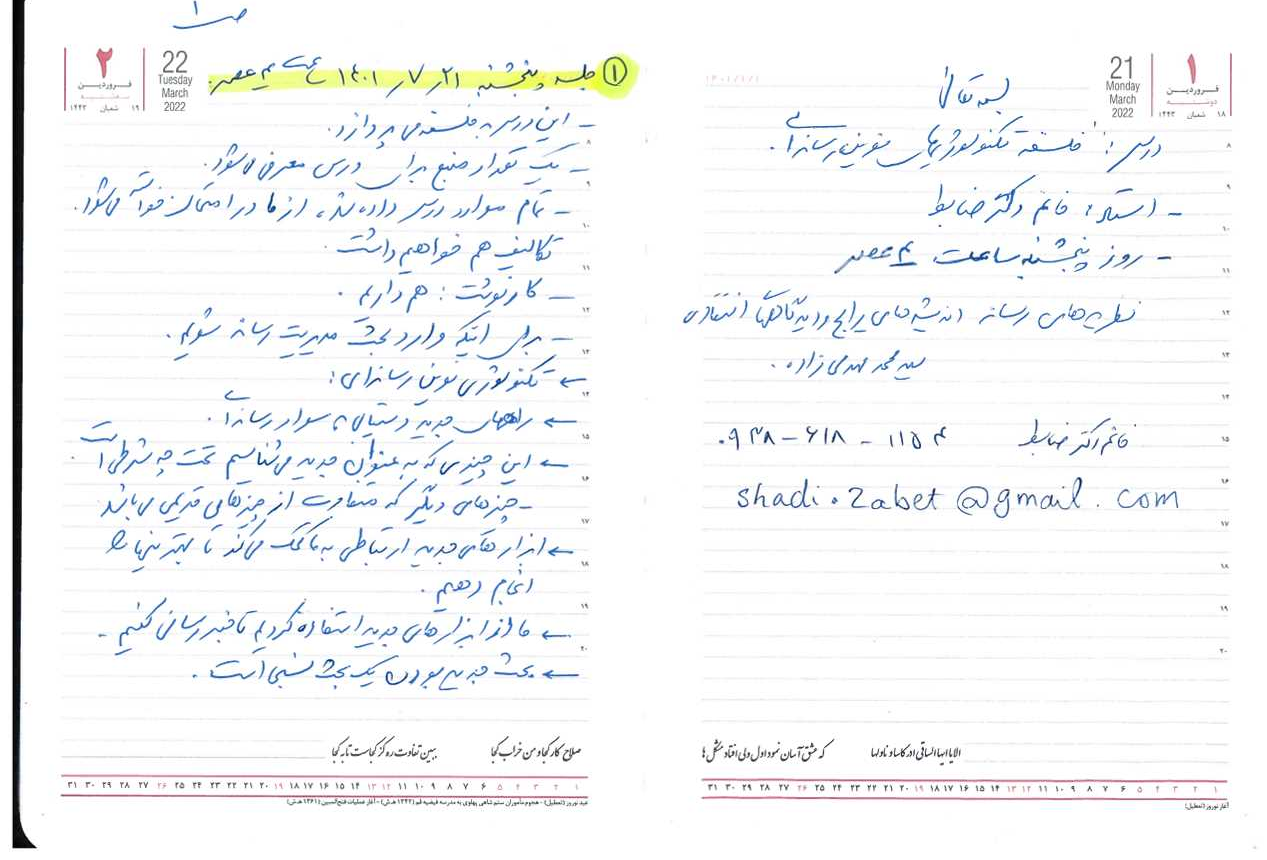 ص ۱
۱
فروردین
دوشنبه
۱۸ شعبان ۱۴۴۳
21
Monday
March
2022
۱۴۰۱/۱/۱
بسمه تعالی
درس: فلسفه تکنولوژیهای نوین رسانه‌ای.
- استاد: خانم دکتر ضابط
- روز پنجشنبه ساعت ۴ عصر
نظریه‌های رسانه اندیشه‌های رایج و دیدگاههای انتقادی
سید محمد مهدی زاده.
خانم دکتر ضابط ۰۹۳۸-۶۱۸-۱۱۵۴
shadi.zabet@gmail.com
۸
۹
۱۰
۱۱
۱۲
۱۳
۱۴
۱۵
۱۶
۱۷
۱۸
۱۹
۲۰
الا یا ایها الساقی ادر کاسا و ناولها که عشق آسان نمود اول ولی افتاد مشکل‌ها
۱ ۲ ۳ ۴ ۵ ۶ ۷ ۸ ۹ ۱۰ ۱۱ ۱۲ ۱۳ ۱۴ ۱۵ ۱۶ ۱۷ ۱۸ ۱۹ ۲۰ ۲۱ ۲۲ ۲۳ ۲۴ ۲۵ ۲۶ ۲۷ ۲۸ ۲۹ ۳۰ ۳۱
آغاز نوروز (تعطیل)
۲
فروردین
سه‌شنبه
۱۹ شعبان ۱۴۴۳
22
Tuesday
March
2022
① جلسه پنجشنبه ۲۱ / ۷ / ۱۴۰۱ ساعت ۴ عصر.
- این درس به فلسفه می پردازد.
- یک تعداد منبع برای درس معرفی می‌شود.
- تمام موارد درس داده شده، از ما در امتحان خواسته می‌شود.
تکالیف هم خواهیم داشت.
- کار نوشت: هم داریم.
- برای اینکه وارد بحث مدیریت رسانه شویم.
← تکنولوژی نوین رسانه‌ای:
← راههای جدید دستیابی به سواد رسانه‌ای.
← این چیزی که به عنوان جدید می‌شناسیم تحت چه شرطی است.
- چیزهای دیگر که متفاوت از چیزهای قدیمی می باشد
← ابزارهای جدید ارتباطی به ما کمک می‌کند تا بهتر
انجام دهیم.
← ما از ابزارهای جدید استفاده کردیم تا خبر رسانی کنیم.
← بحث جدید بودن یک بحث نسبی است.
۸
۹
۱۰
۱۱
۱۲
۱۳
۱۴
۱۵
۱۶
۱۷
۱۸
۱۹
۲۰
صلاح کار کجا و من خراب کجا ببین تفاوت ره کز کجاست تا به کجا
۱ ۲ ۳ ۴ ۵ ۶ ۷ ۸ ۹ ۱۰ ۱۱ ۱۲ ۱۳ ۱۴ ۱۵ ۱۶ ۱۷ ۱۸ ۱۹ ۲۰ ۲۱ ۲۲ ۲۳ ۲۴ ۲۵ ۲۶ ۲۷ ۲۸ ۲۹ ۳۰ ۳۱
عید نوروز (تعطیل) - هجوم مأموران ستم شاهی پهلوی به مدرسه فیضیه قم (۱۳۴۲ ه.ش) - آغاز عملیات فتح المبین (۱۳۶۱ ه.ش)